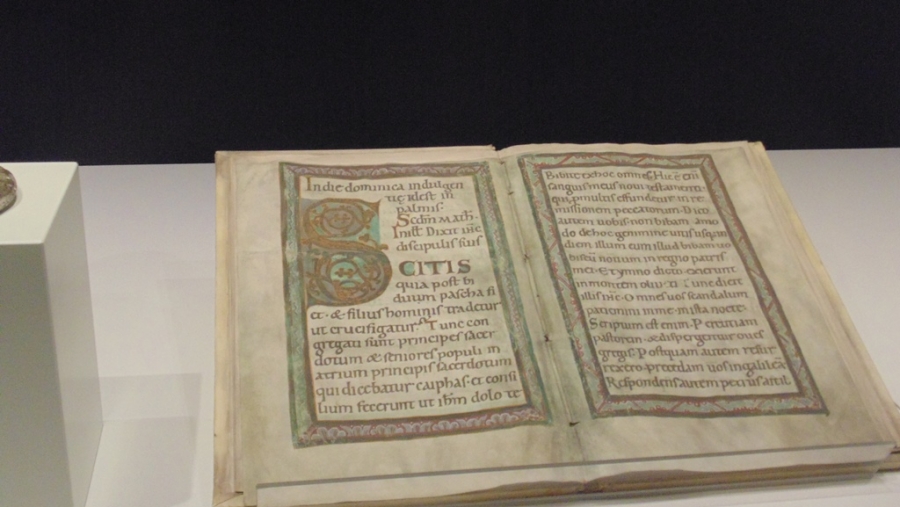 In die dominica indulgen
tię idest in
palmis:
Scdm Math.
In illt Dixit ihc
discipulis suis
SCITIS
quia post bi
duum pascha fi
et & filius hominis tradetur
ut crucifigatur Tunc con
gregati sunt principes sacer
dotum & seniores populi in
atrium principis sacerdotum
qui dicebatur caiphas et consi
lium fecerunt ut ihm dolo te
Bibite ex hoc omnes Hic e eni
sanguis meus noui testamenti
qui p multis effundetur in re
missionem peccatorum Dico
autem uobis non bibam amo
do de hoc genimine uitis usq in
diem illum cum illud bibam uo
biscu nouum in regno patris
mei Et ymno dicto exierunt
in montem oliueti Tunc dicit
illis ihc Omnes uos scandalum
patiemini in me in ista nocte
Scriptum est enim Percutiam
pastorem & dispergentur oues
gregis Postquam autem resur
rexero precedam uos in galileā
Respondens autem petrus ait il